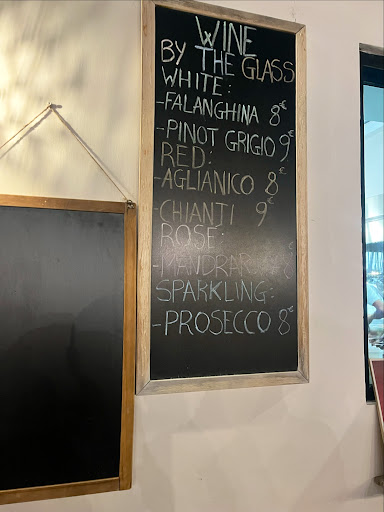 WINE
BY THE GLASS
WHITE:
-FALANGHINA 8€
-PINOT GRIGIO 9€
RED:
-AGLIANICO 8€
-CHIANTI 9€
ROSE:
SPARKLING:
-PROSECCO 8€